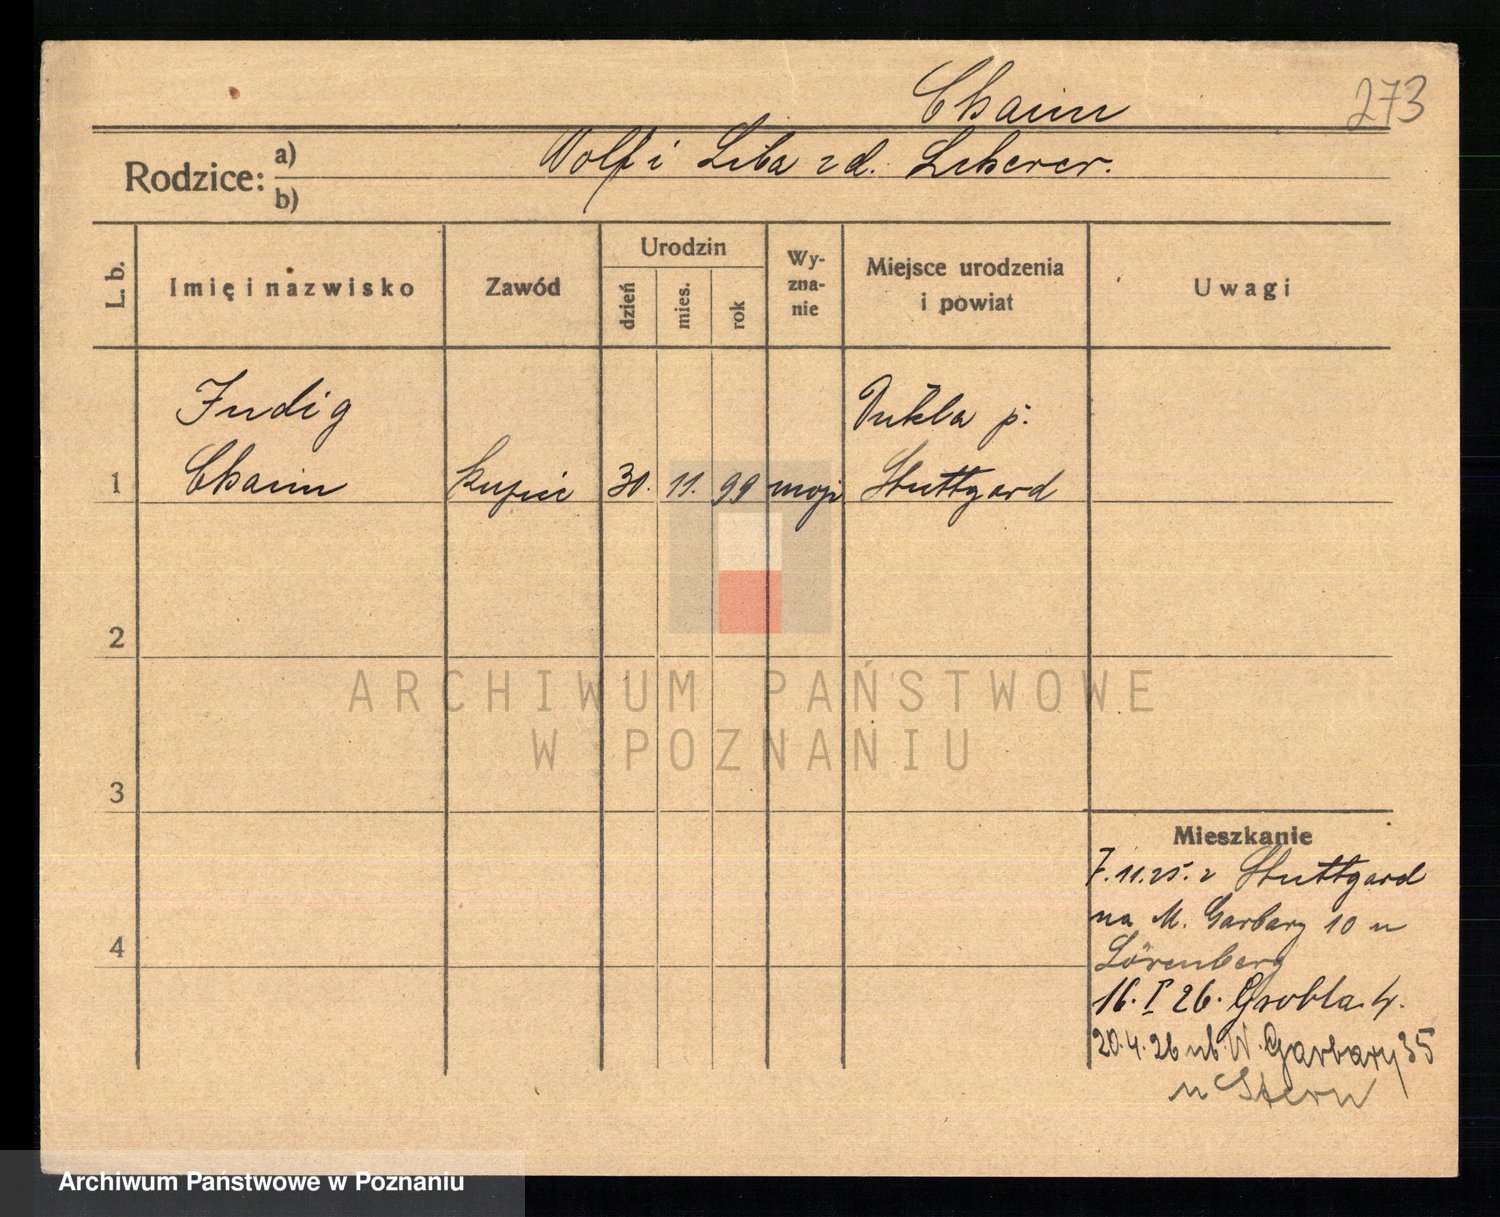 Chaim
273
Rodzice: a) b)
Wolf i Liba z d. Leherer.
L. b. Imię i nazwisko Zawód Urodzin dzień mies. rok Wyznanie Miejsce urodzenia i powiat Uwagi
Judig Dukla p.
1 Chaim kupiec 30. 11. 99 mojż Stuttgard
2
3
4
Mieszkanie
7.11.25. z Stuttgard
na M. Garbary 10 u
Lörenberg
16. I 26. Grobla 4.
20.4.26 ub. W. Garbary 35
u Stern
ARCHIWUM PAŃSTWOWE
W POZNANIU
Archiwum Państwowe w Poznaniu